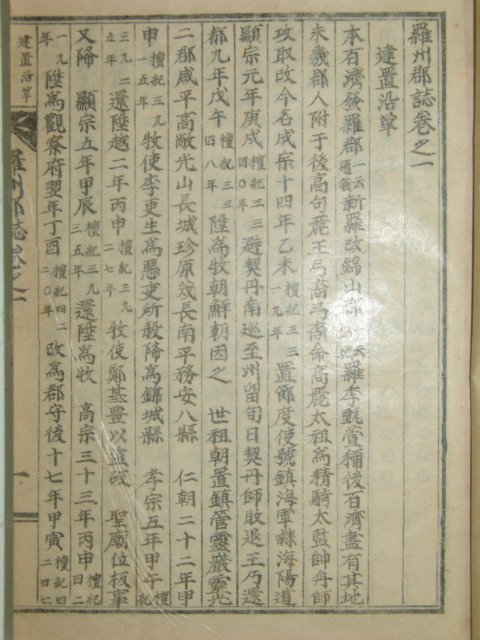 羅州郡誌卷之一
建置沿革
本百濟發羅郡一云通義新羅改錦山郡一云羅季甄萱稱後百濟盡有其地
未幾郡人附于後高句麗王弓裔弓裔命高麗太祖爲精騎太監帥舟師
攻取改今名成宗十四年乙未檀紀三三一九年置節度使號鎭海軍隸海陽道
顯宗元年庚戌檀紀三三四〇年避契丹南巡至州留旬日契丹師敗退王乃還
都九年戊午檀紀三三四八年陞爲牧朝鮮朝因之 世祖朝置鎭管靈巖靈光
二郡咸平高敞光山長城珍原茂長南平務安八縣 仁朝二十二年甲
申檀紀三九一五年牧使李更生爲惡吏所殺降爲錦城縣 孝宗五年甲午檀紀
三九二五年還陞越二年丙申檀紀三九二七年牧使鄭基豐以盜破 聖廟位板事
又降 顯宗五年甲辰檀紀三九三五年還陞爲牧 高宗三十三年丙申檀紀四二
二九年陞爲觀察府翌年丁酉檀紀四二三〇年改爲郡守後十七年甲寅檀紀四二四七
建置沿革
羅州郡誌卷之一
一